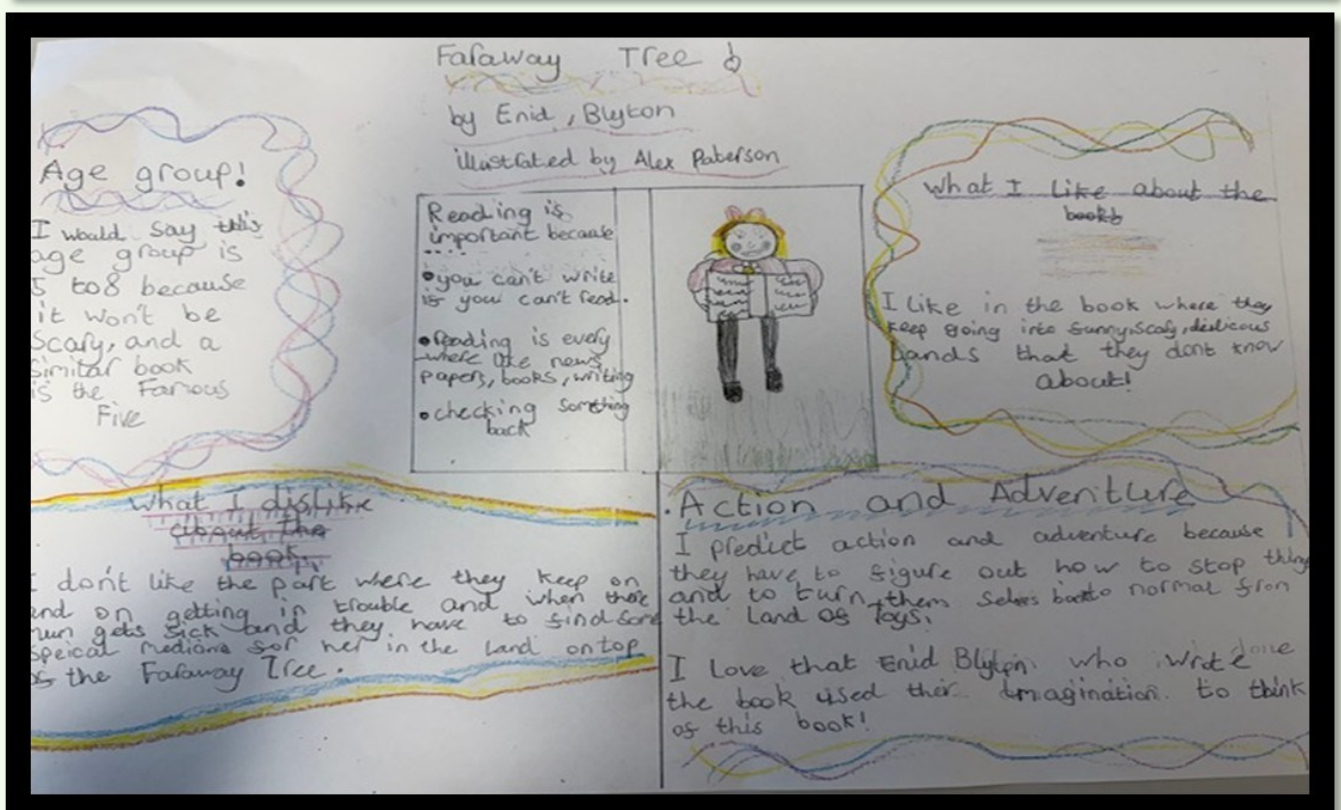 Faraway Tree
by Enid, Blyton
illustrated by Alex Paterson
Age group!
I would say this
age group is
5 to8 because
it won't be
Scary, and a
similar book
is the Famous
Five
Reading is
important because
....
•you can't write
if you can't read.
•reading is every
where like news
papers, books, writing
•checking Something
back
What I Like about the
books
I Like in the book where they
keep going into funny,Scary,
Lands that they dont know
about!
What I dislike
about the
book.
don't like the part where they keep on
and on getting in trouble and when there
mum gets sick and they have to find some
speical for her in the Land ontop
of the Faraway Tree.
.Action and Adventure
I predict action and adventure because
they have to figure out how to stop things
and to turn them to normal from
the Land of Toys.
I Love that Enid Blyton who wrote
the book used ther Imagination to think
of this book!